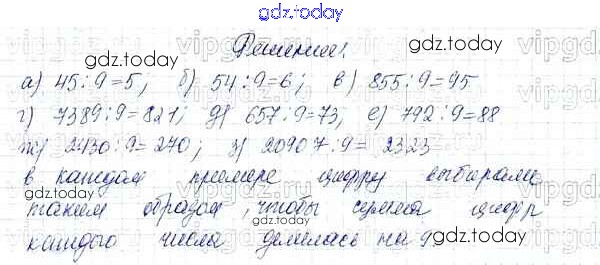 gdz.today
Решение!
gdz.today
а) 45:9=5; б) 54:9=6; в) 855:9=95
г) 7389:9=821; д) 657:9=73, е) 792:9=88
ж) 2430:9=270; з) 20907:9=2323
gdz.today
в каждом примере цифру выбирали
таким образом, чтобы сумма цифр
каждого числа делилась на 9
gdz.today